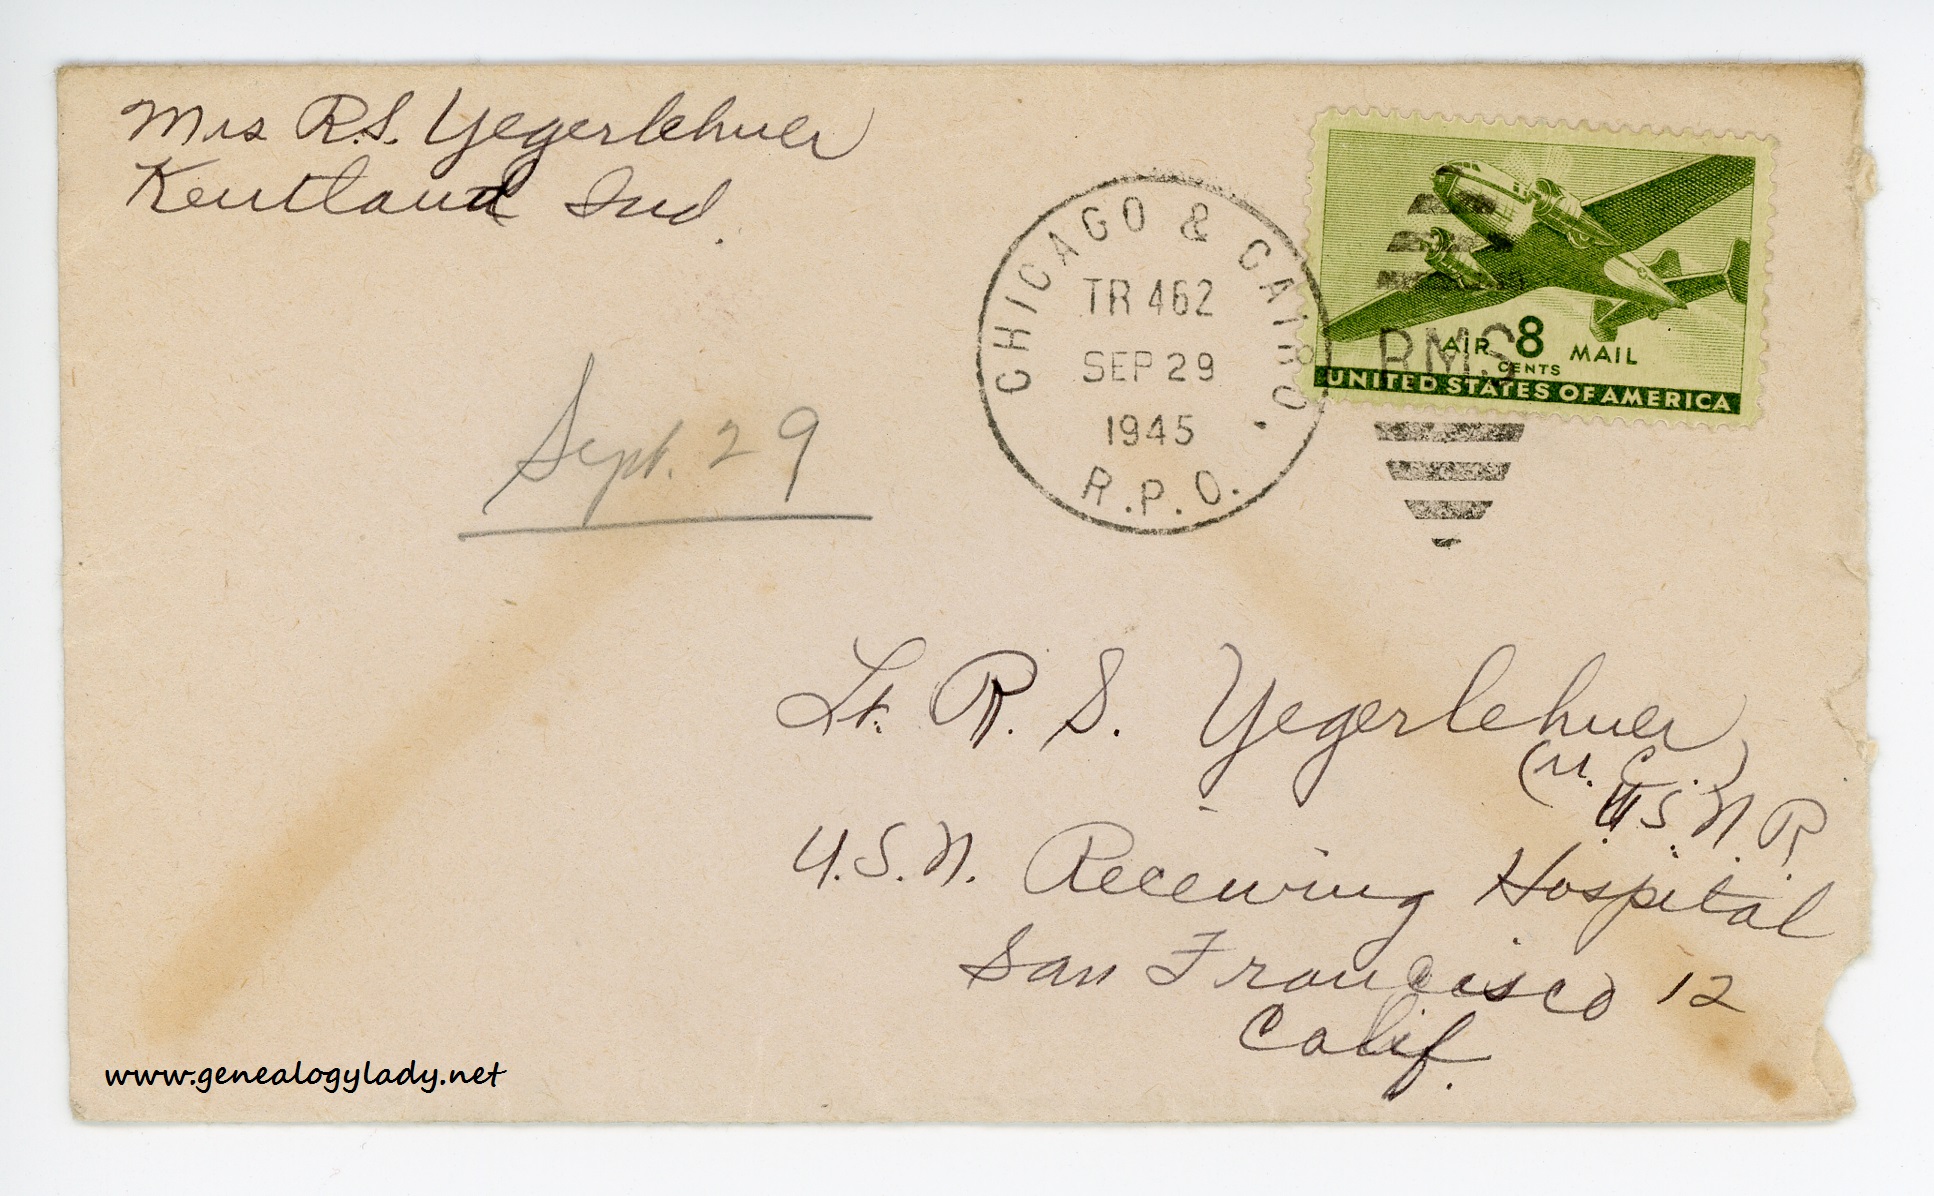 Mrs R.S. Yegerlehner
Kentland Ind.
CHICAGO & CAIRO.
TR 462
SEP 29
1945
R.P.O.
RMS
AIR 8 MAIL
CENTS
UNITED STATES OF AMERICA
Sept. 29
Lt. R. S. Yegerlehner
(M.C.)
U.S.N.R.
U.S.N. Receiving Hospital
San Francisco 12
Calif.
www.genealogylady.net